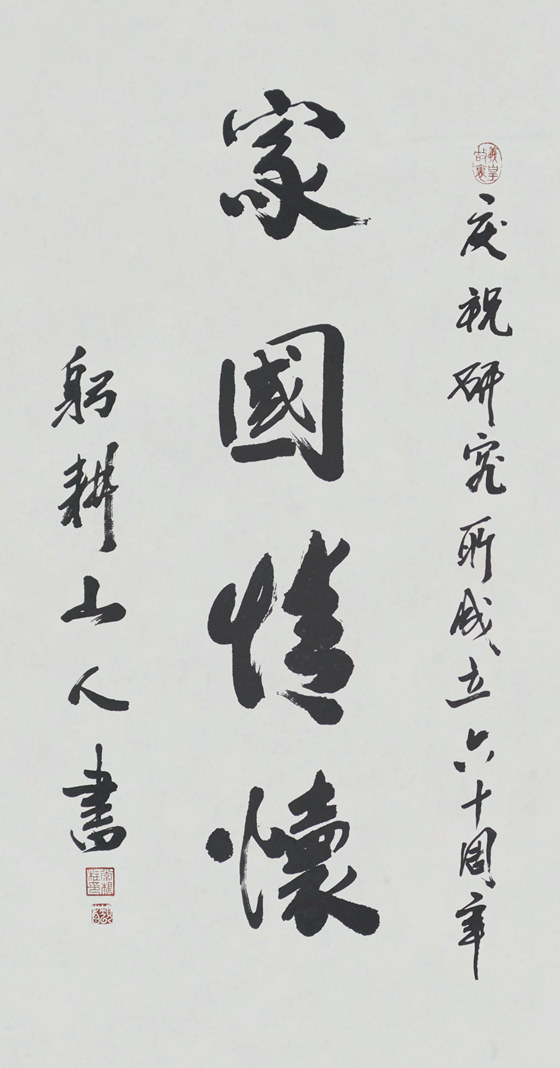 庆祝研究所成立六十周年
家國情懷
躬耕山人書